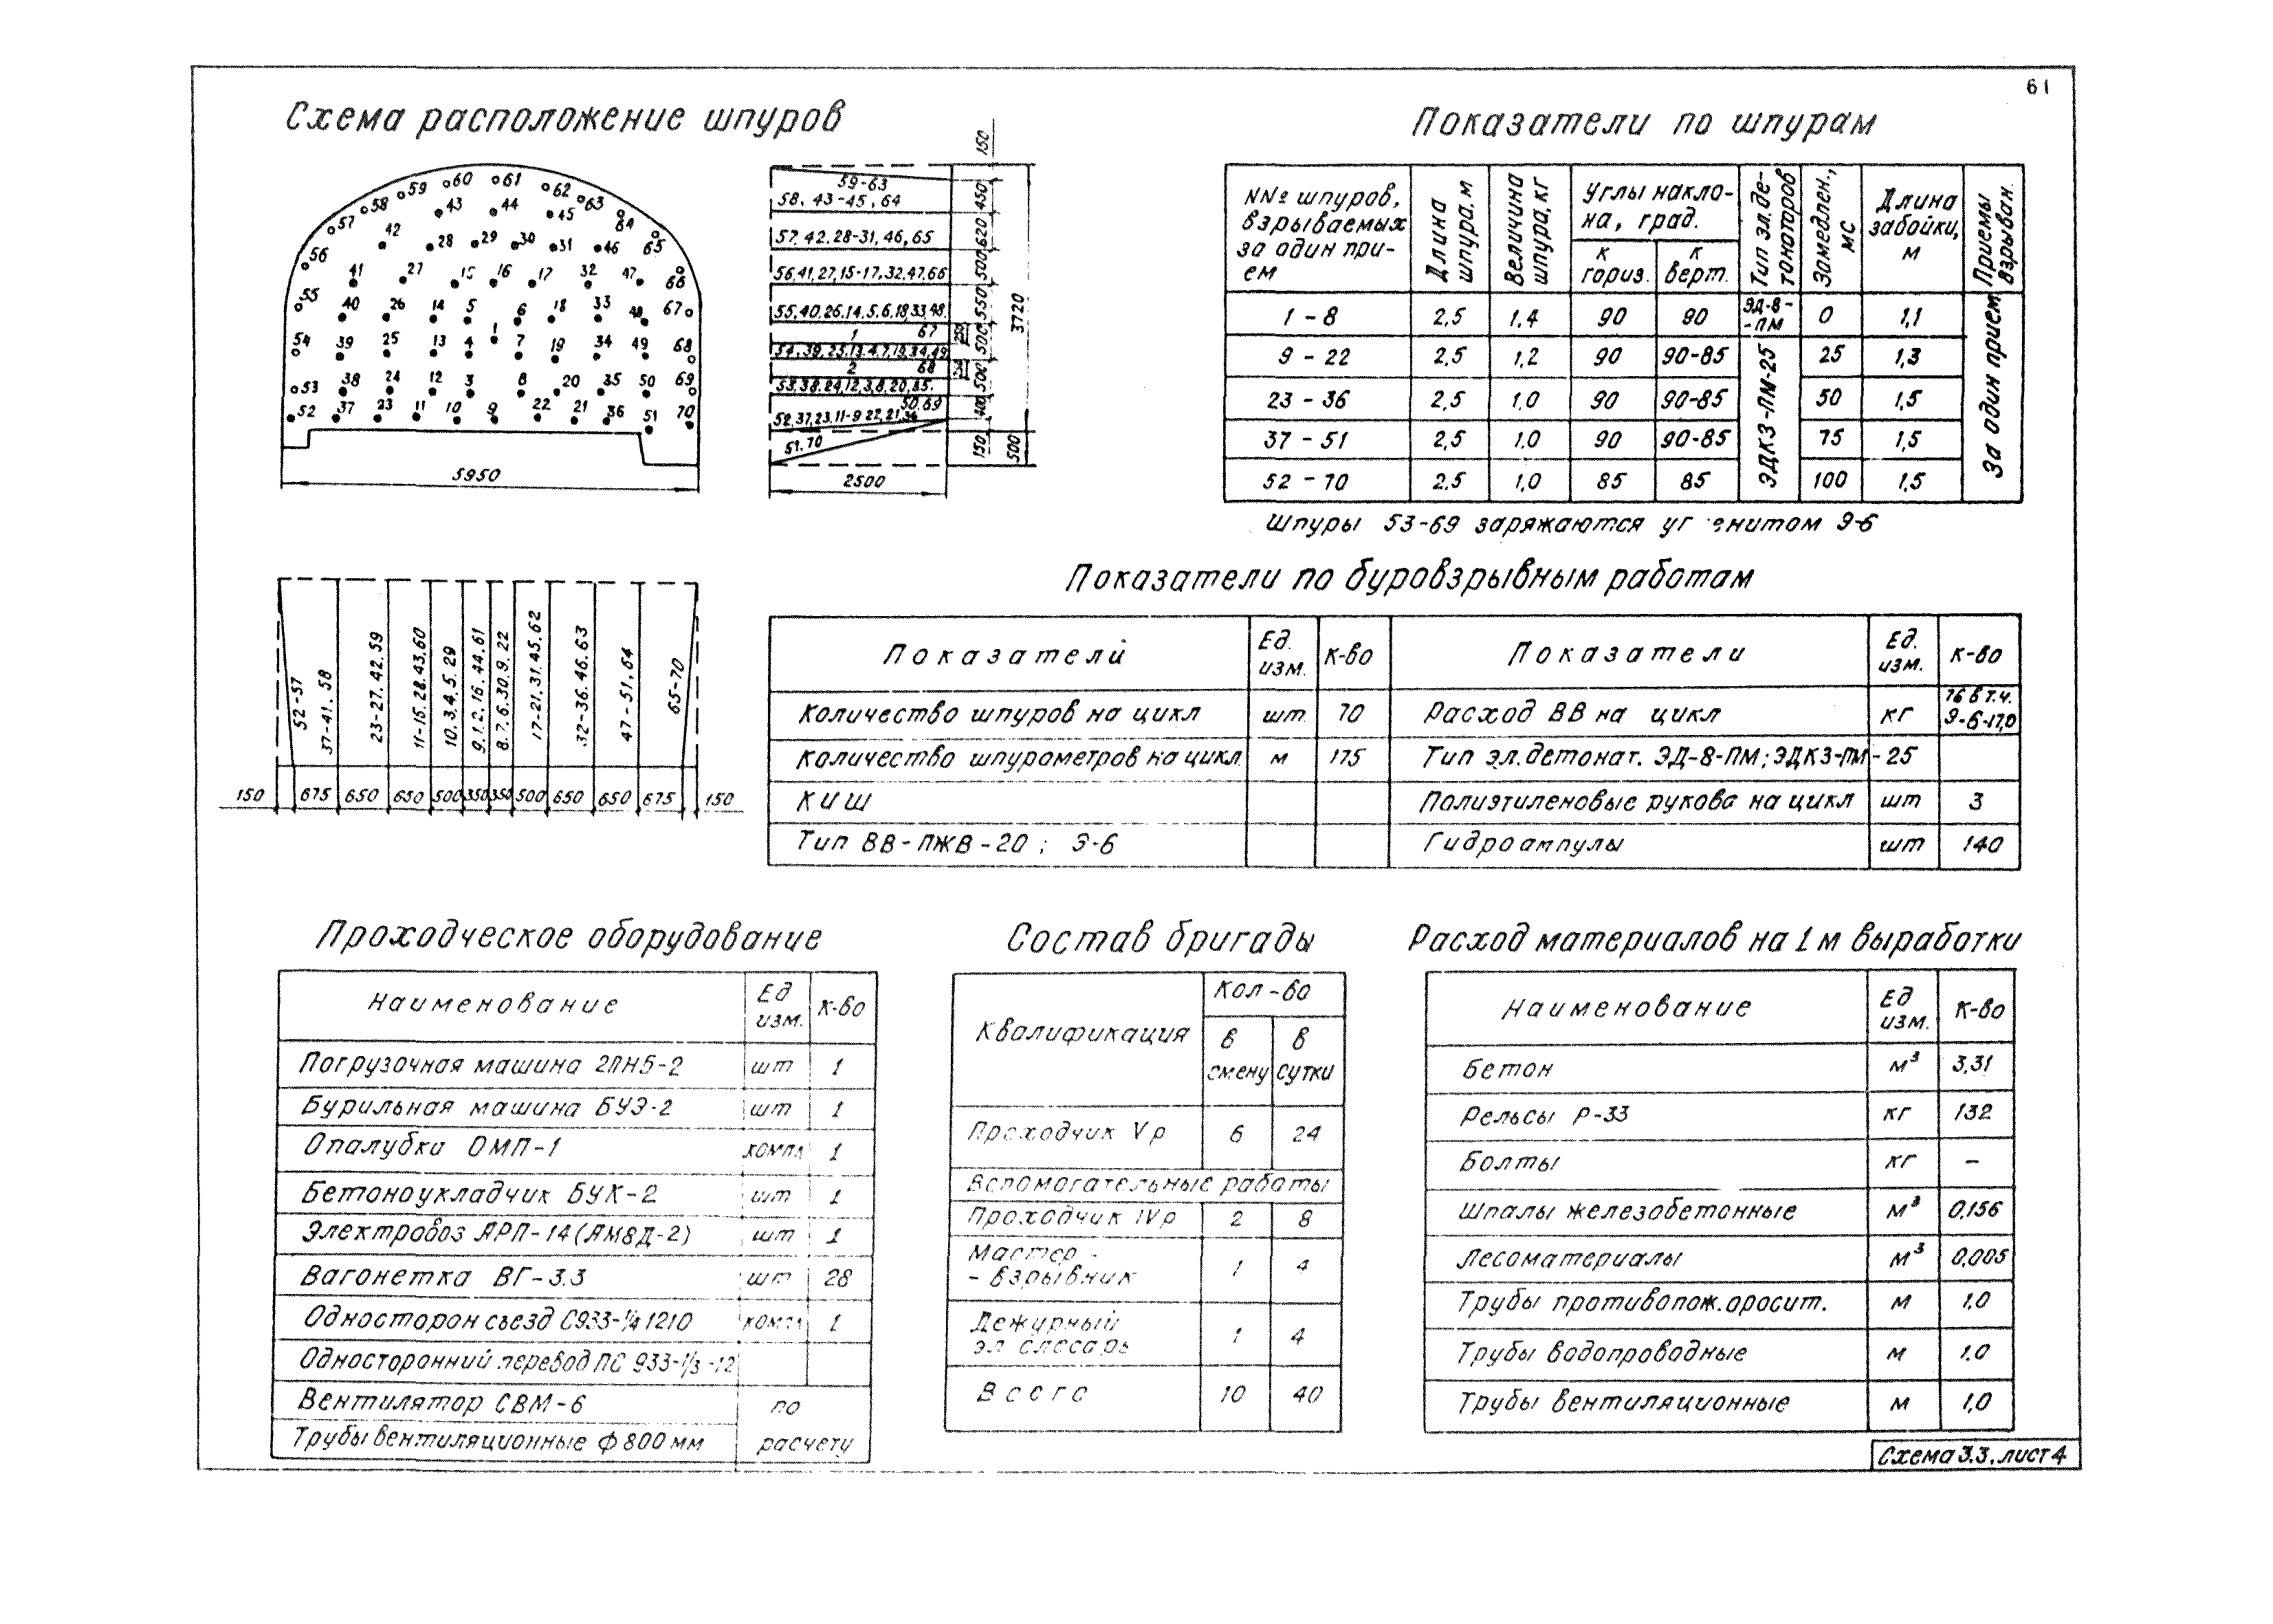 61
Схема расположение шпуров
Показатели по шпурам
59 60 61 62 63
58 43 44 45 64
57 42 28 29 30 31 46 65
56 41 27 15 16 17 32 47 66
55 40 26 14 5 6 18 33 48 67
54 39 25 13 4 1 7 19 34 49 68
53 38 24 12 3 8 20 35 50 69
52 37 23 11 10 9 22 21 36 51 70
5950
59-63
58. 43-45, 64
57. 42. 28-31, 46, 65
56,41,27,15-17.32.47.66
55.40.26.14.5.6.18.33.48.
1 67
54.39.25.13.4.7.19.34.49
2 68
53.38.24.12.3.8.20.35.
50.69
52.37.23.11-9 22.21.36
51. 70
2500
150
450
620
500
550
500
500
400
150
3720
500
№№ шпуров, взрываемых за один при-ем
Длина шпура, м
Величина шпура, кг
Углы накло-на, град.
к гориз.
к верт.
Тип эл. де-тонаторов
Замедлен., мс
Длина забойки, м
Приемы взрыван.
1 - 8 2,5 1,4 90 90 ЭД-8--ПМ 0 1,1
9 - 22 2,5 1,2 90 90-85 25 1,3
23 - 36 2,5 1,0 90 90-85 50 1,5
37 - 51 2,5 1.0 90 90-85 75 1,5
52 - 70 2.5 1,0 85 85 100 1,5
ЭДКЗ-ПМ-25
За один прием
Шпуры 53-69 заряжаются уг енитом Э-6
52-57
37-41. 58
23-27. 42. 59
11-15. 28. 43. 60
10. 3. 4. 5. 29
9. 1. 2. 16. 44. 61
8. 7. 6. 30. 9. 22
17-21. 31. 45. 62
32-36. 46. 63
47-51. 64
65-70
150 675 650 650 500 350 350 500 650 650 675 150
Показатели по буровзрывным работам
Показатели Ед. изм. К-во Показатели Ед. изм. К-во
Количество шпуров на цикл шт. 70 Расход ВВ на цикл кг 76 в т.ч. Э-6-17,0
Количество шпурометров на цикл м 175 Тип эл. детонат. ЭД-8-ПМ; ЭДКЗ-ПМ-25
КИШ Полиэтиленовые рукава на цикл шт 3
Тип ВВ-ПЖВ-20; Э-6 Гидроампулы шт 140
Проходческое оборудование
Наименование Ед изм. К-во
Погрузочная машина 2ПНБ-2 шт 1
Бурильная машина БУЭ-2 шт 1
Опалубка ОМП-1 компл 1
Бетоноукладчик БУК-2 шт 1
Электровоз АРП-14 (АМ8Д-2) шт 1
Вагонетка ВГ-3.3 шт 28
Односторон съезд С933-1/4 1210 компл 1
Односторонний перевод ПС 933-1/3-12
Вентилятор СВМ-6 по
Трубы вентиляционные ф 800 мм расчету
Состав бригады
Квалификация Кол-во
в смену в сутки
Проходчик Vр 6 24
Вспомогательные работы
Проходчик IVр 2 8
Мастер -
- взрывник 1 4
Дежурный
эл слесарь 1 4
Всего 10 40
Расход материалов на 1 м выработки
Наименование Ед изм. К-во
Бетон м³ 3,31
Рельсы Р-33 кг 132
Болты кг -
Шпалы железобетонные м³ 0,156
Лесоматериалы м³ 0,005
Трубы противопож. оросит. м 1.0
Трубы водопроводные м 1.0
Трубы вентиляционные м 1,0
Схема 3.3, лист 4